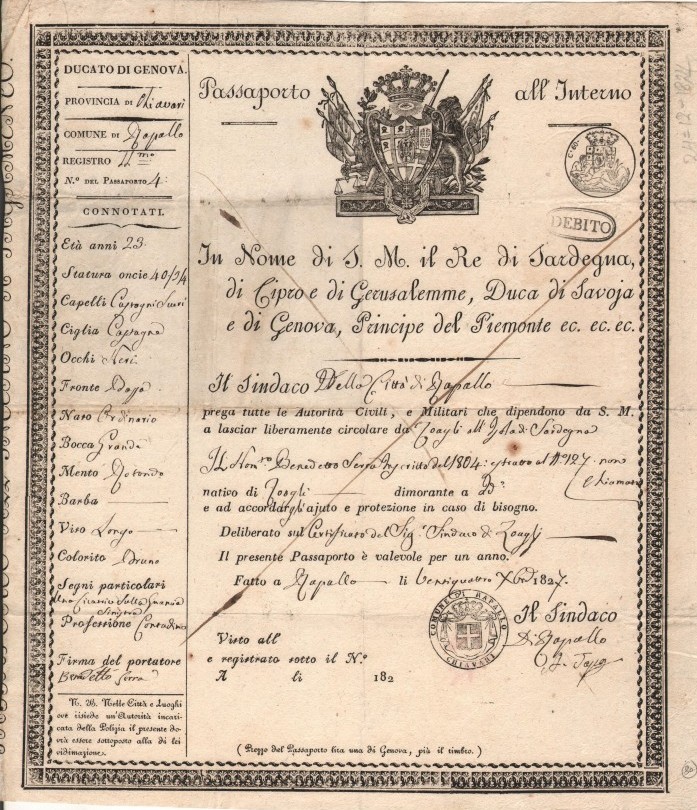 DUCATO DI GENOVA.
PROVINCIA DI Chiavari
COMUNE DI Rapallo
REGISTRO
N.º DEL PASSAPORTO 4.
CONNOTATI.
Età anni 23
Statura oncie 40/24
Capelli Castagni Scuri
Ciglia Castagne
Occhi Neri
Fronte
Naso Ordinario
Bocca Grande
Mento Rotondo
Barba
Viso Longo
Colorito Bruno
Segni particolari
Una Cicatrice Sulla Guancia
Sinistra
Professione Contadino
Firma del portatore
Benedetto Serra
N. B. Nelle Città e Luoghi
ove risiede un'Autorità incari-
cata della Polizia il presente do-
vrà essere sottoposto alla di lei
vidimazione.
Passaporto all'Interno
DEBITO
In Nome di S. M. il Re di Sardegna,
di Cipro e di Gerusalemme, Duca di Savoja
e di Genova, Principe del Piemonte ec. ec. ec.
Il Sindaco Della Città di Rapallo
prega tutte le Autorità Civili, e Militari che dipendono da S. M.
a lasciar liberamente circolare da Zoagli all'Isola di Sardegna
Il Benedetto Serra Inscritto del 1804: estratto al N° 127. non
chiamato
nativo di Zoagli dimorante a
e ad accordargli ajuto e protezione in caso di bisogno.
Deliberato sul Certificato del Sig.r Sindaco di Zoagli
Il presente Passaporto è valevole per un anno.
Fatto a Rapallo li Ventiquattro Xbre 1827.
COMUNE DI RAPALLO
CHIAVARI
Il Sindaco
Di Rapallo
Visto all'
e registrato sotto il N.º
A li 182
(Prezzo del Passaporto lira una di Genova, più il timbro.)
24=12-1827